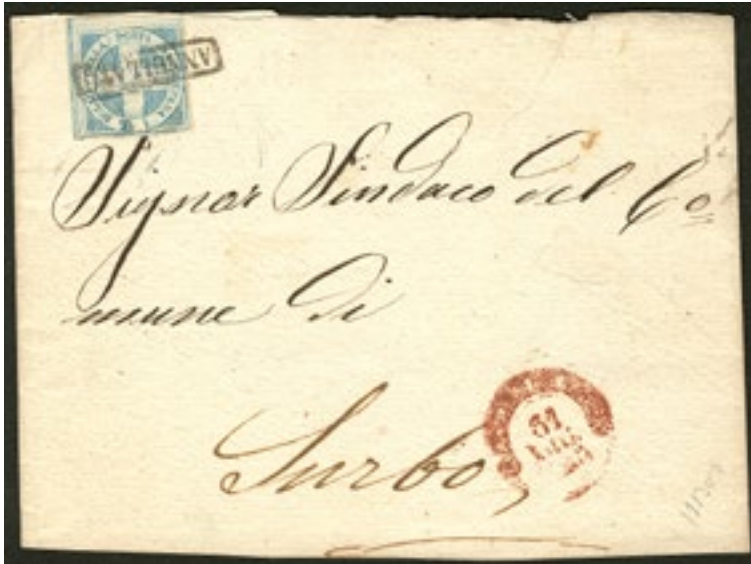 ANNULLATO
Signor Sindaco del Co=
mune di
Surbo,
31